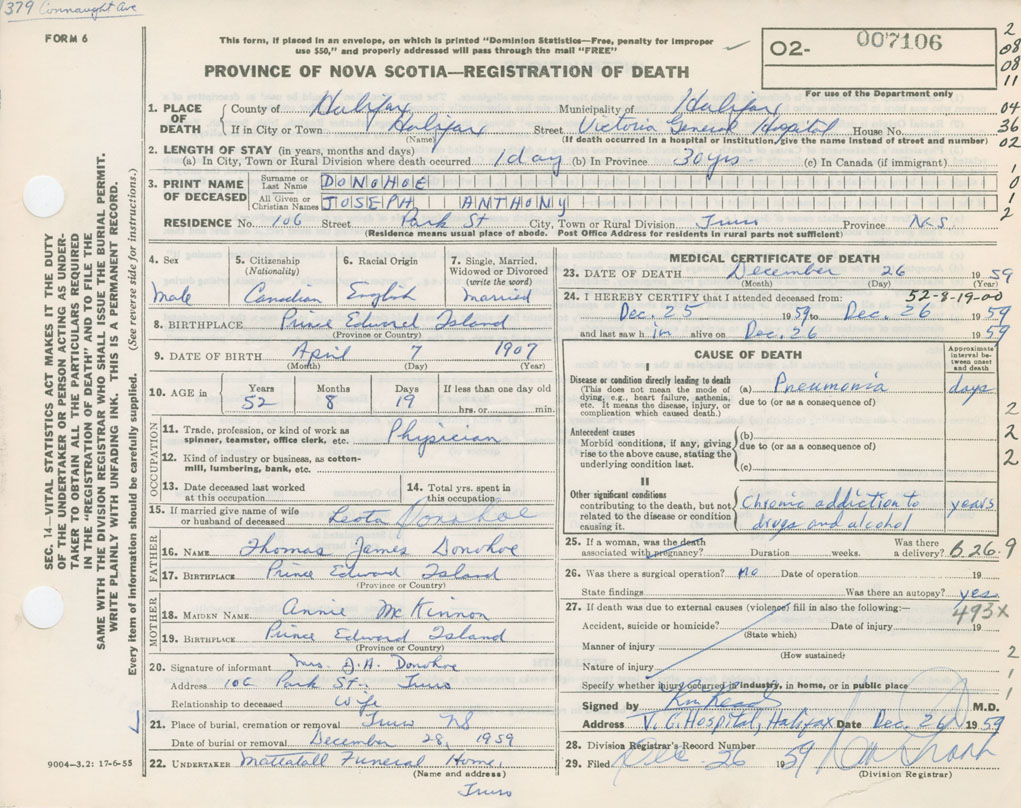 379 Connaught Ave
FORM 6
This form, if placed in an envelope, on which is printed "Dominion Statistics—Free, penalty for improper
use $50," and properly addressed will pass through the mail "FREE"
PROVINCE OF NOVA SCOTIA—REGISTRATION OF DEATH
02- 007106
For use of the Department only
2
08
08
11
04
36
02
1
0
1
2
SEC. 14—VITAL STATISTICS ACT MAKES IT THE DUTY
OF THE UNDERTAKER OR PERSON ACTING AS UNDER-
TAKER TO OBTAIN ALL THE PARTICULARS REQUIRED
IN THE "REGISTRATION OF DEATH" AND TO FILE THE
SAME WITH THE DIVISION REGISTRAR WHO SHALL ISSUE THE BURIAL PERMIT.
WRITE PLAINLY WITH UNFADING INK. THIS IS A PERMANENT RECORD.
Every item of information should be carefully supplied. (See reverse side for instructions.)
1. PLACE OF DEATH
County of Halifax Municipality of Halifax
If in City or Town Halifax Street Victoria General Hospital House No.
(Name) (If death occurred in a hospital or institution, give the name instead of street and number)
2. LENGTH OF STAY (in years, months and days)
(a) In City, Town or Rural Division where death occurred 1 day (b) In Province 30 yrs. (c) In Canada (if immigrant)
3. PRINT NAME OF DECEASED
Surname or Last Name DONOHOE
All Given or Christian Names JOSEPH ANTHONY
RESIDENCE No. 106 Street Park St City, Town or Rural Division Truro Province N.S.
(Residence means usual place of abode. Post Office Address for residents in rural parts not sufficient)
4. Sex
Male
5. Citizenship
(Nationality)
Canadian
6. Racial Origin
English
7. Single, Married,
Widowed or Divorced
(write the word)
Married
8. BIRTHPLACE Prince Edward Island
(Province or Country)
9. DATE OF BIRTH April 7 1907
(Month) (Day) (Year)
10. AGE in Years Months Days If less than one day old
52 8 19 hrs. or min.
OCCUPATION
11. Trade, profession, or kind of work as
spinner, teamster, office clerk, etc. Physician
12. Kind of industry or business, as cotton-
mill, lumbering, bank, etc.
13. Date deceased last worked
at this occupation
14. Total yrs. spent in
this occupation
15. If married give name of wife
or husband of deceased Leota Donohoe
FATHER
16. NAME Thomas James Donohoe
17. BIRTHPLACE Prince Edward Island
(Province or Country)
MOTHER
18. MAIDEN NAME Annie McKinnon
19. BIRTHPLACE Prince Edward Island
(Province or Country)
20. Signature of informant Mrs. J.A. Donohoe
Address 106 Park St., Truro
Relationship to deceased Wife
21. Place of burial, cremation or removal Truro NS
Date of burial or removal December 28, 1959
22. UNDERTAKER Mattatall Funeral Home,
(Name and address)
Truro
9004—3.2: 17-6-55
MEDICAL CERTIFICATE OF DEATH
23. DATE OF DEATH December 26 1959
(Month) (Day) (Year)
24. I HEREBY CERTIFY that I attended deceased from: 52-8-19-00
Dec. 25 1959 to Dec. 26 1959
and last saw him alive on Dec. 26 1959
CAUSE OF DEATH
Approximate
interval be-
tween onset
and death
I
Disease or condition directly leading to death
(This does not mean the mode of
dying, e.g., heart failure, asthenia,
etc. It means the disease, injury, or
complication which caused death.)
(a) Pneumonia days
due to (or as a consequence of)
Antecedent causes
Morbid conditions, if any, giving
rise to the above cause, stating the
underlying condition last.
(b)
due to (or as a consequence of)
(c)
II
Other significant conditions
contributing to the death, but not
related to the disease or condition
causing it.
Chronic addiction to years
drugs and alcohol
2
2
2
25. If a woman, was the death Was there
associated with pregnancy? Duration weeks. a delivery? B.26.9
26. Was there a surgical operation? no Date of operation 19
State findings Was there an autopsy? yes
27. If death was due to external causes (violence) fill in also the following:— 493X
Accident, suicide or homicide? Date of injury 19
(State which)
Manner of injury 2
(How sustained)
Nature of injury
Specify whether injury occurred in industry, in home, or in public place 1
Signed by M.D. 1
Address V. G. Hospital, Halifax Date Dec. 26 1959
28. Division Registrar's Record Number
29. Filed Dec. 26 1959
(Division Registrar)